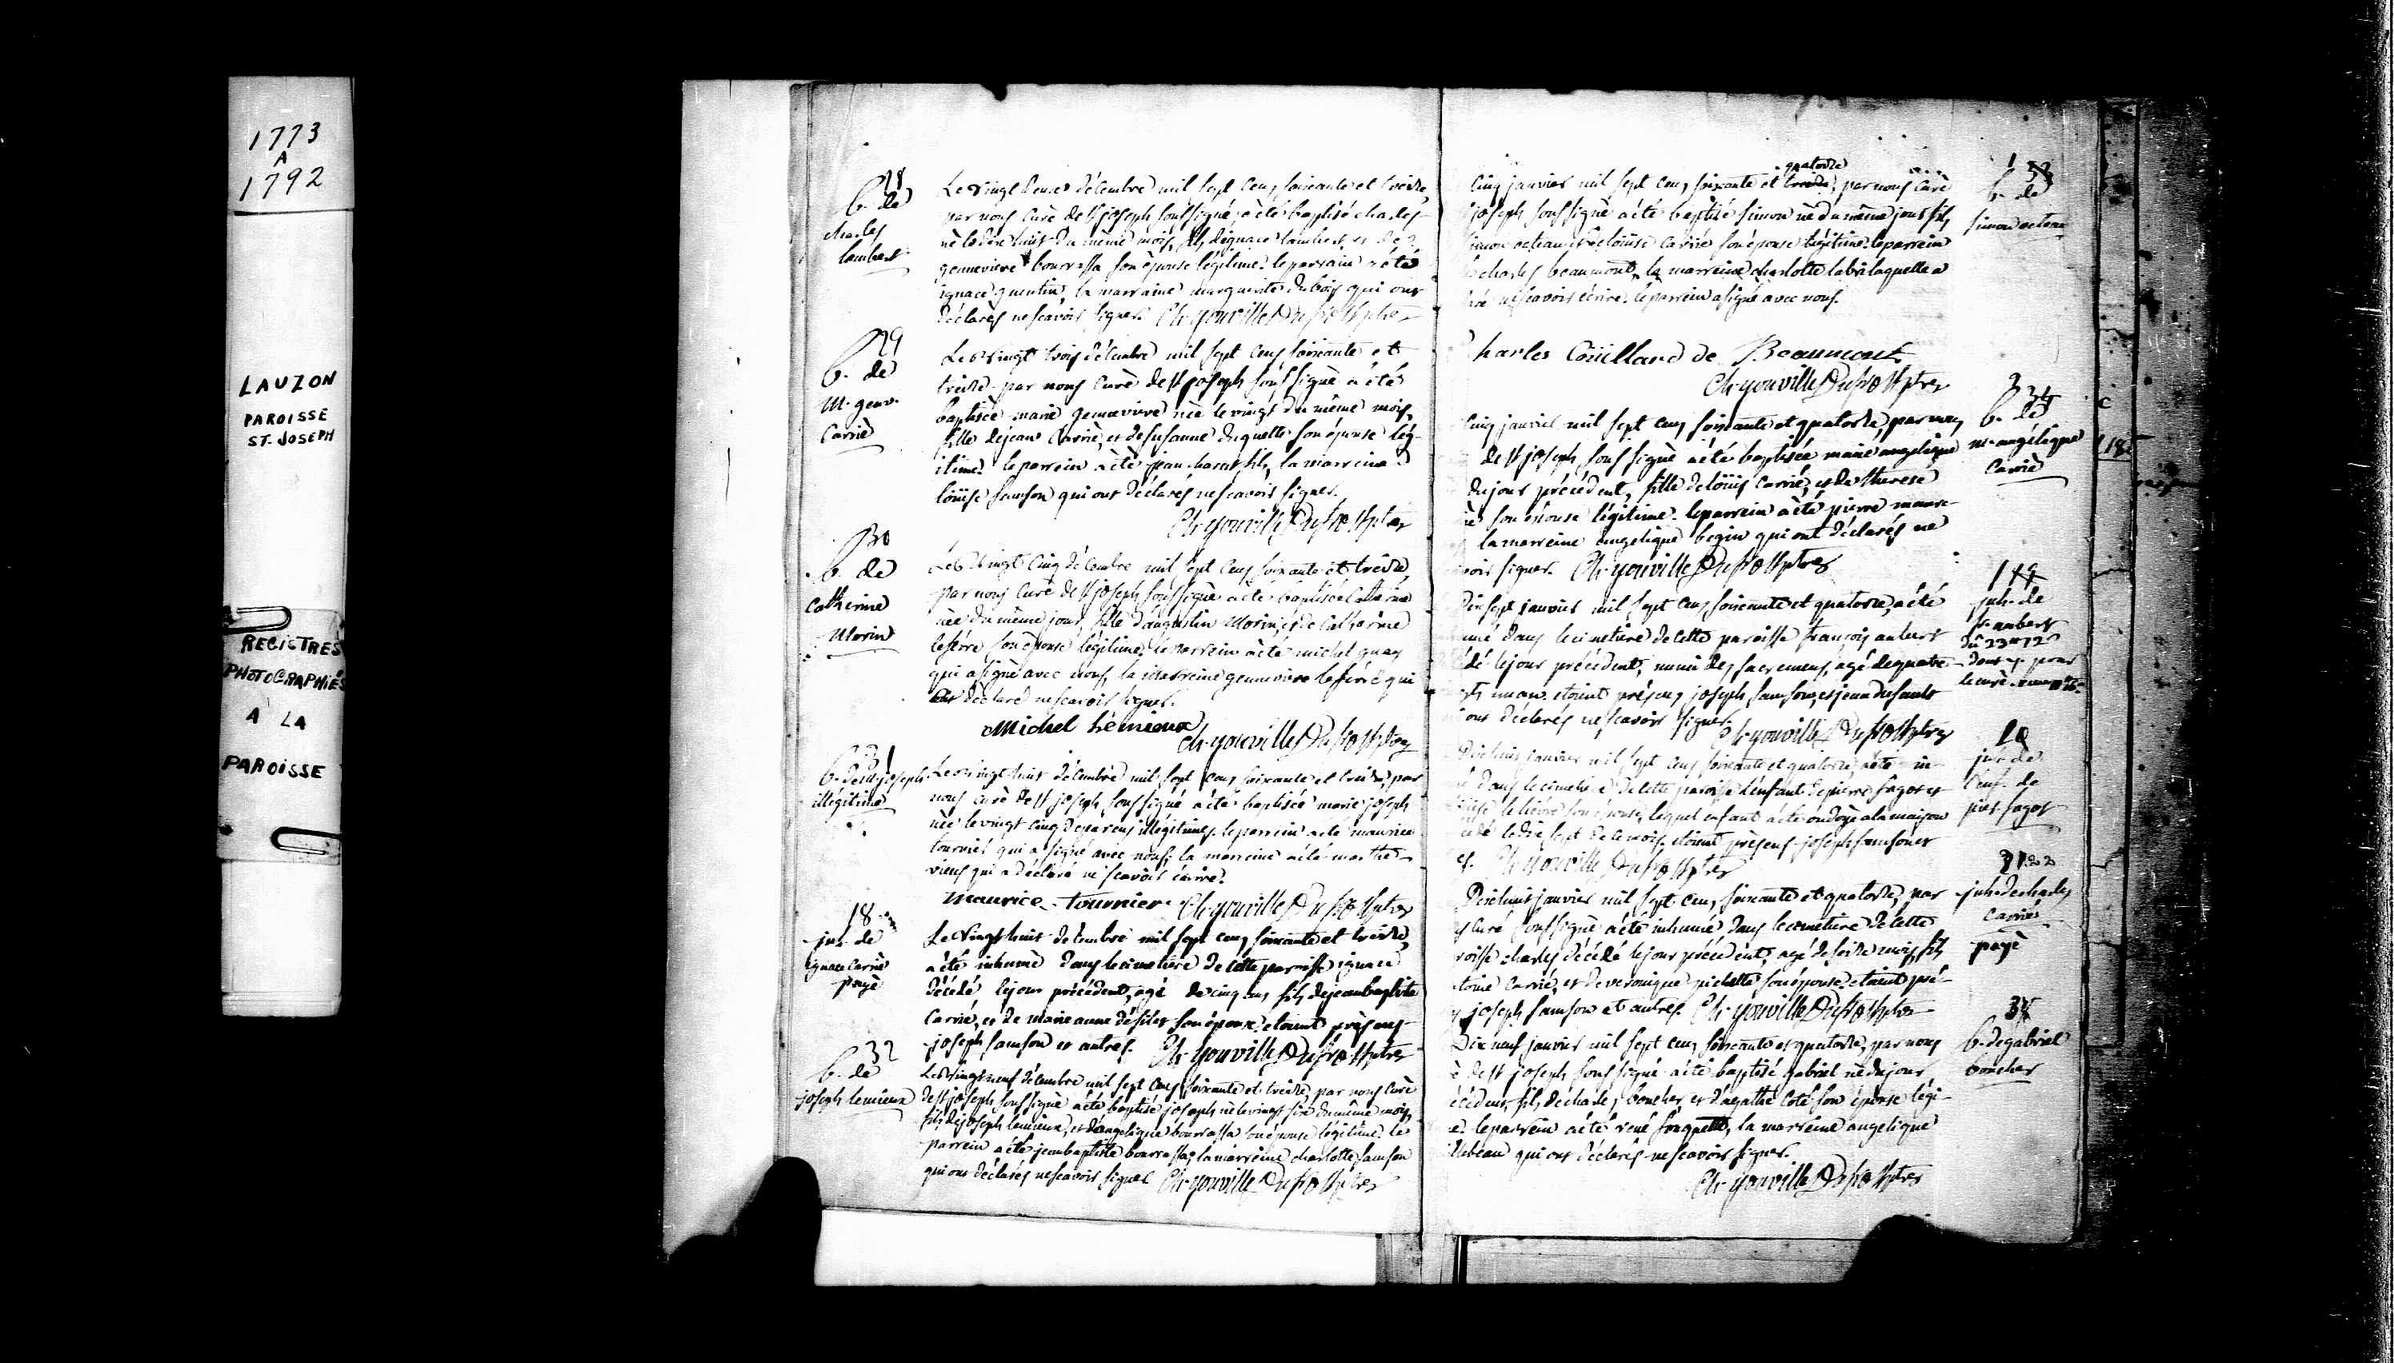 1773
A
1792
LAUZON
PAROISSE
ST. JOSEPH
REGISTRES
PHOTOGRAPHIÉS
A LA
PAROISSE
28
b. de
charles
lambert
Le vingt deux décembre mil sept cens soixante et treize
par nous curé de st joseph soussigné a été baptisé charles
né le dix huit du même mois, fils d'ignace lambert et de
genevieve bourassa son épouse légitime. le parrain a été
ignace quentin, la marraine marguerite dubois qui ont
déclarés ne scavoir signer. Ch. youville Dufrost ptre
29
b. de
m. genev.
Carrié
Le vingt trois décembre mil sept cens soixante et
treize par nous curé de st joseph soussigné a été
baptisée marie genevieve née le vingt du même mois,
fille de jean Carrié, et de susanne duquette son épouse lég-
itime. le parrein a été jean fils, la marreine
loüise samson qui ont déclarés ne scavoir signer.
Ch. youville Dufrost ptre
30
b. de
Catherine
Morin
Le vingt cinq décembre mil sept cens soixante et treize
par nous curé de st joseph soussigné a été baptisée Catherine
née du même jour, fille d'augustin Morin, et de Catherine
son épouse légitime. le parrein a été michel guay
qui a signé avec nous, la marreine genevieve qui
a déclaré ne scavoir signer.
Michel Lemieux
Ch. youville Dufrost ptre
31
b. de m. joseph
illégitime
Le vingt huit décembre mil sept cens soixante et treize, par
nous curé de st joseph soussigné a été baptisée marie joseph
née le vingt cinq de parens illégitimes. le parrein a été maurice
tournier qui a signé avec nous, la marreine a été marthe
qui a déclaré ne scavoir écrire.
Maurice Tournier Ch. youville Dufrost ptre
18
inh. de
ignace Carrié
payé
Le vingt huit décembre mil sept cens soixante et treize
a été inhumé dans le cimetière de cette paroisse ignace
décédé le jour précédent, agé de cinq ans, fils de jean baptiste
Carrié, et de marie anne son épouse. etoient présens
joseph samson et autres. Ch. youville Dufrost ptre
32
b. de
joseph lemieux
Le vingt neuf décembre mil sept cens soixante et treize, par nous curé
de st joseph soussigné a été baptisé joseph né le vingt six du même mois,
fils de joseph lemieux, et d'angelique bourassa son épouse légitime. le
parrein a été jean baptiste bourassa, la marreine charlotte samson
qui ont déclarés ne scavoir signer Ch. youville Dufrost ptre
cinq janvier mil sept cens soixante et quatorze, par nous curé
joseph soussigné a été baptisé simon né du même jour fils
simon octeau et de loüise Carrié son épouse légitime. le parrein
charles beaumont, la marreine charlotte laquelle a
ne scavoir écrire. le parrein a signé avec nous.
1
b. de
simon octeau
Charles Couillard de Beaumont
Ch. youville Dufrost ptre
cinq janvier mil sept cens soixante et quatorze, par nous
de st joseph soussigné a été baptisée marie angelique
du jour précédent, fille de loüis Carrié, et de therese
son épouse légitime. le parrein a été pierre
la marreine angelique begin qui ont déclarés ne
scavoir signer. Ch. youville Dufrost ptre
2
b. de
m. angelique
Carrié
Dix sept janvier mil sept cens soixante et quatorze, a été
inhumé dans le cimetière de cette paroisse françois aubert
décédé le jour précédent, muni des sacremens, agé de quatre
un an. etoient présens joseph samson, et jean dusault
ont déclarés ne scavoir signer.
Ch. youville Dufrost ptre
1
inh. de
f. aubert
Dix huit janvier mil sept cens soixante et quatorze, a été in-
dans le cimetière de cette paroisse l'enfant de pierre fagot et
son épouse, lequel enfant a été ondoyé a la maison
le dix sept de ce mois. etoient présens joseph samson et
Ch. youville Dufrost ptre
inh. de
l'enf. de
pier. fagot
Dix huit janvier mil sept cens soixante et quatorze, par
curé soussigné a été inhumé dans le cimetière de cette
paroisse charles décédé le jour précédent, agé de seize mois, fils
Carrié, et de veronique michelle son épouse. etoient pré-
joseph samson et autres. Ch. youville Dufrost ptre
inh. de charles
Carrié
payé
Dix neuf janvier mil sept cens soixante et quatorze, par nous
de st joseph soussigné a été baptisé gabriel né du jour
précédent, fils de charles boucher, et d'agathe coté son épouse légi-
le parrein a été rené fouquette, la marreine angelique
qui ont déclarés ne scavoir signer.
Ch. youville Dufrost ptre
b. de gabriel
boucher